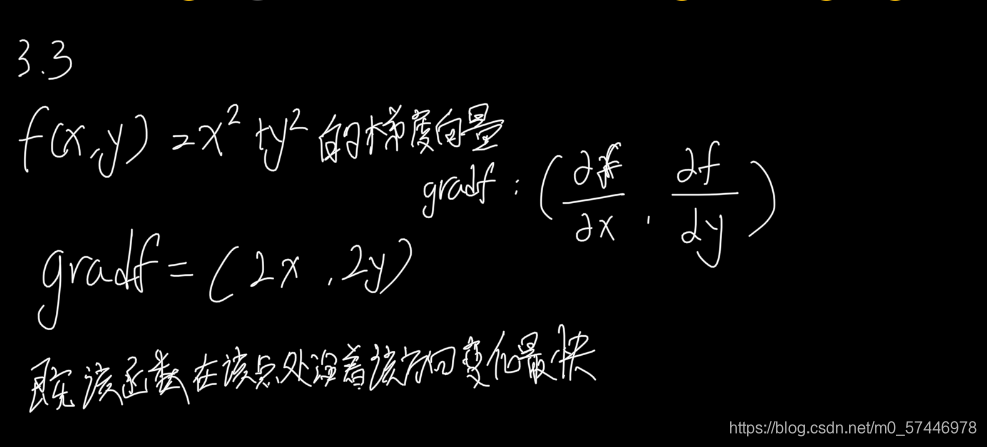 3.3
f(x,y)=x²+y²的梯度向量
gradf:(∂f/∂x, ∂f/∂y)
gradf=(2x,2y)
既该函数在该点处沿着该方向变化最快
https://blog.csdn.net/m0_57446978